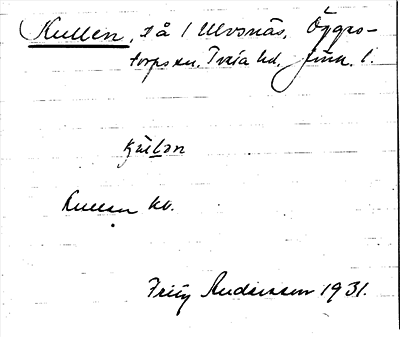 Kullen, på / Ulvsnäs, Öggestorps sn. Tveta hd. Jönk. l.
kúlən
Kullen kb.
Fritz Andersson 1931.